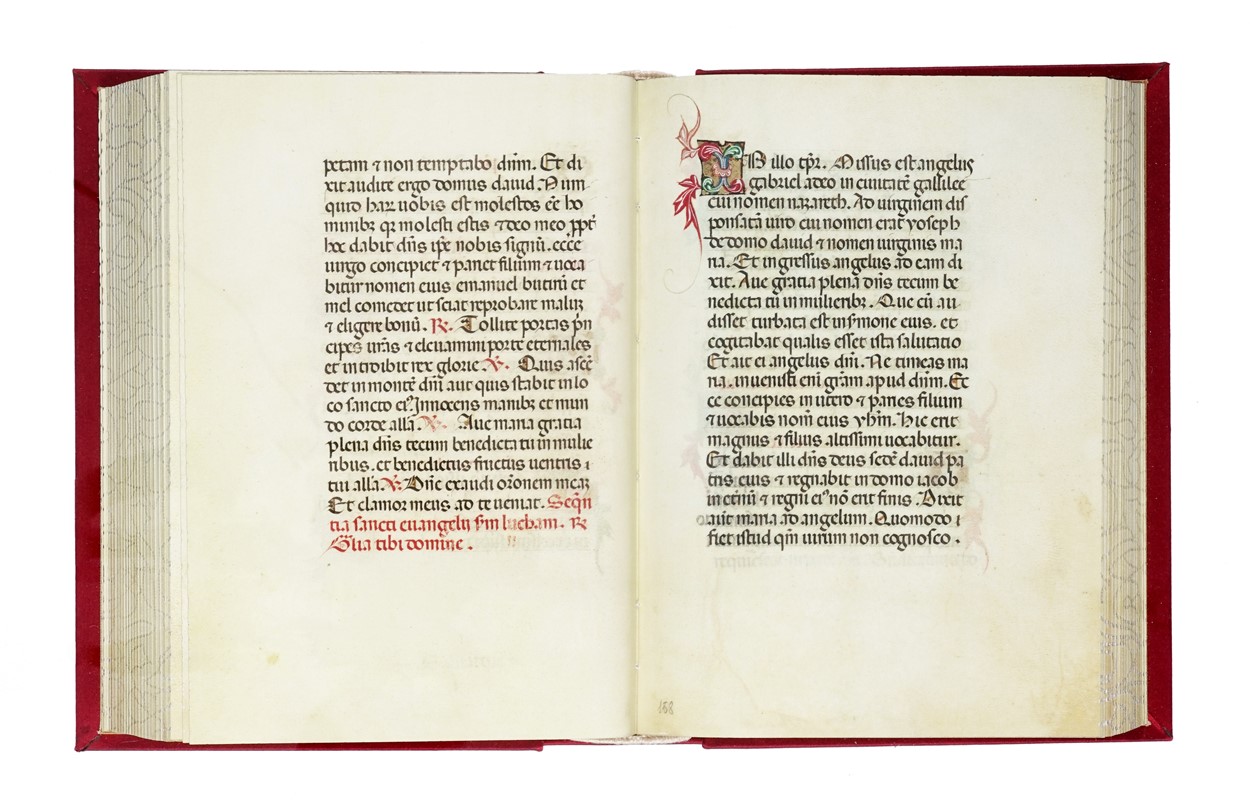 petam ⁊ non temptabo dn̄m. Et di
xit audite ergo domus dauid. Num
quid har uobis est molestos eē ho
minibȝ qꝛ molesti estis ⁊ deo meo ꝓpt̄
hoc dabit dn̄s ip̄e nobis signū. ecce
uirgo concipiet ⁊ pariet filium ⁊ uoca
bitur nomen eius emanuel butirū et
mel comedet ut sciat reprobare maluꝫ
⁊ eligere bonū. R̃. Tollite portas p̄n
cipes ur̄as ⁊ eleuamini porte eternales
et introibit rex glorie. V̄. Quis ascē
det in montē dn̄i aut quis stabit in lo
co sancto ei9 Innocens manibȝ et mun
do corde alla. V̄. Aue maria gratia
plena dn̄s tecum benedicta tu in mulie
ribus. et benedictus fructus uentris i
tui alla V̄. Dn̄e exaudi orōnem meaꝫ
Et clamor meus ad te ueniat. Seq̄n
tia sancti euangelij s̄m lucham. R̃
Gl̄ia tibi domine.
IN illo tp̄r. Missus est angelus
gabriel adeo in ciuitatē gallilee
cui nomen nazareth. Ad uirginem dis
ponsatā uiro cui nomen erat yoseph
de domo dauid ⁊ nomen uirginis ma
ria. Et ingressus angelus ad eam di
xit. Aue gratia plena dn̄s tecum be
nedicta tu in mulieribȝ. Que cū au
disset turbata est in s̄mone eius. et
cogitabat qualis esset ista salutatio
Et ait ei angelus dn̄i. Ne timeas ma
ria. inuenisti eni gr̄am apud dn̄m. Ec
ce concipies in utero ⁊ paries filium
⁊ uocabis nom̄ eius yh̄m. Hic erit
magnus ⁊ filius altissimi uocabitur.
Et dabit illi dn̄s deus sedē dauid pa
tris eius ⁊ regnabit in domo iacob
in etnū ⁊ regni ei9 nō erit finis. Dixit
aūt maria ad angelum. Quomodo i
fiet istud qm̄ uirum non cognosco.
168